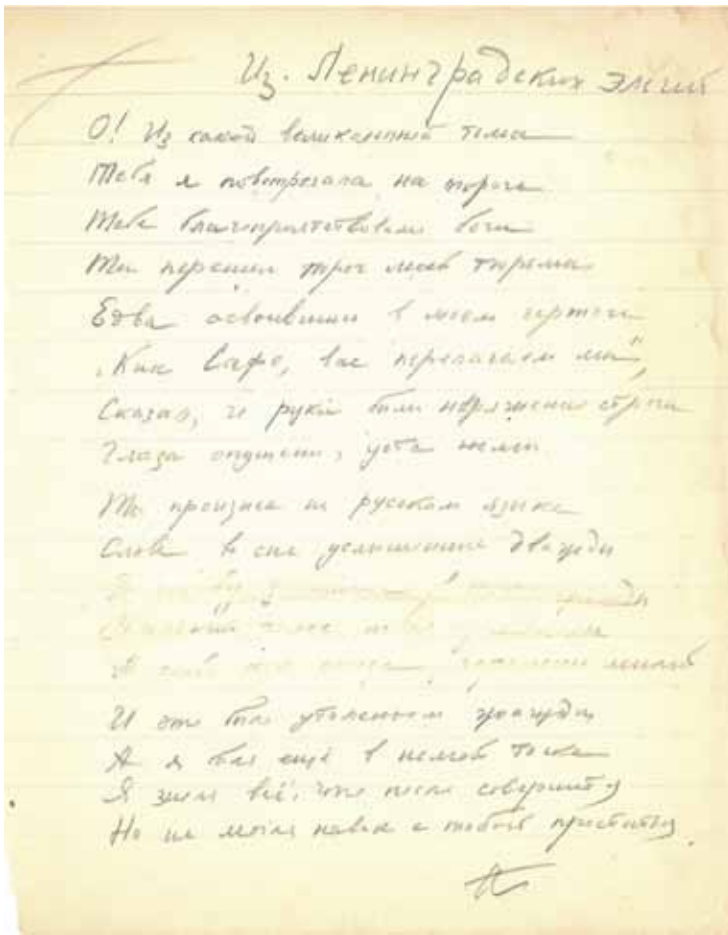 Из Ленинградских элегий
О! Из какой великолепной тьмы
Тебя я повстречала на пороге
Тебе благоприятствовали боги
Ты перешел порог моей тюрьмы
Едва освоившись в моем чертоге
„Как Сафо, вас перелагаем мы",
Сказал, и руки были напряженно строги
Глаза опущены, уста немы.
Ты произнес на русском языке
Слова во сне услышанные дважды
И это было утоленьем жажды
А я был ещё в немой тоске
Я знала всё, что после совершится
Но не могла навек с тобой проститься.